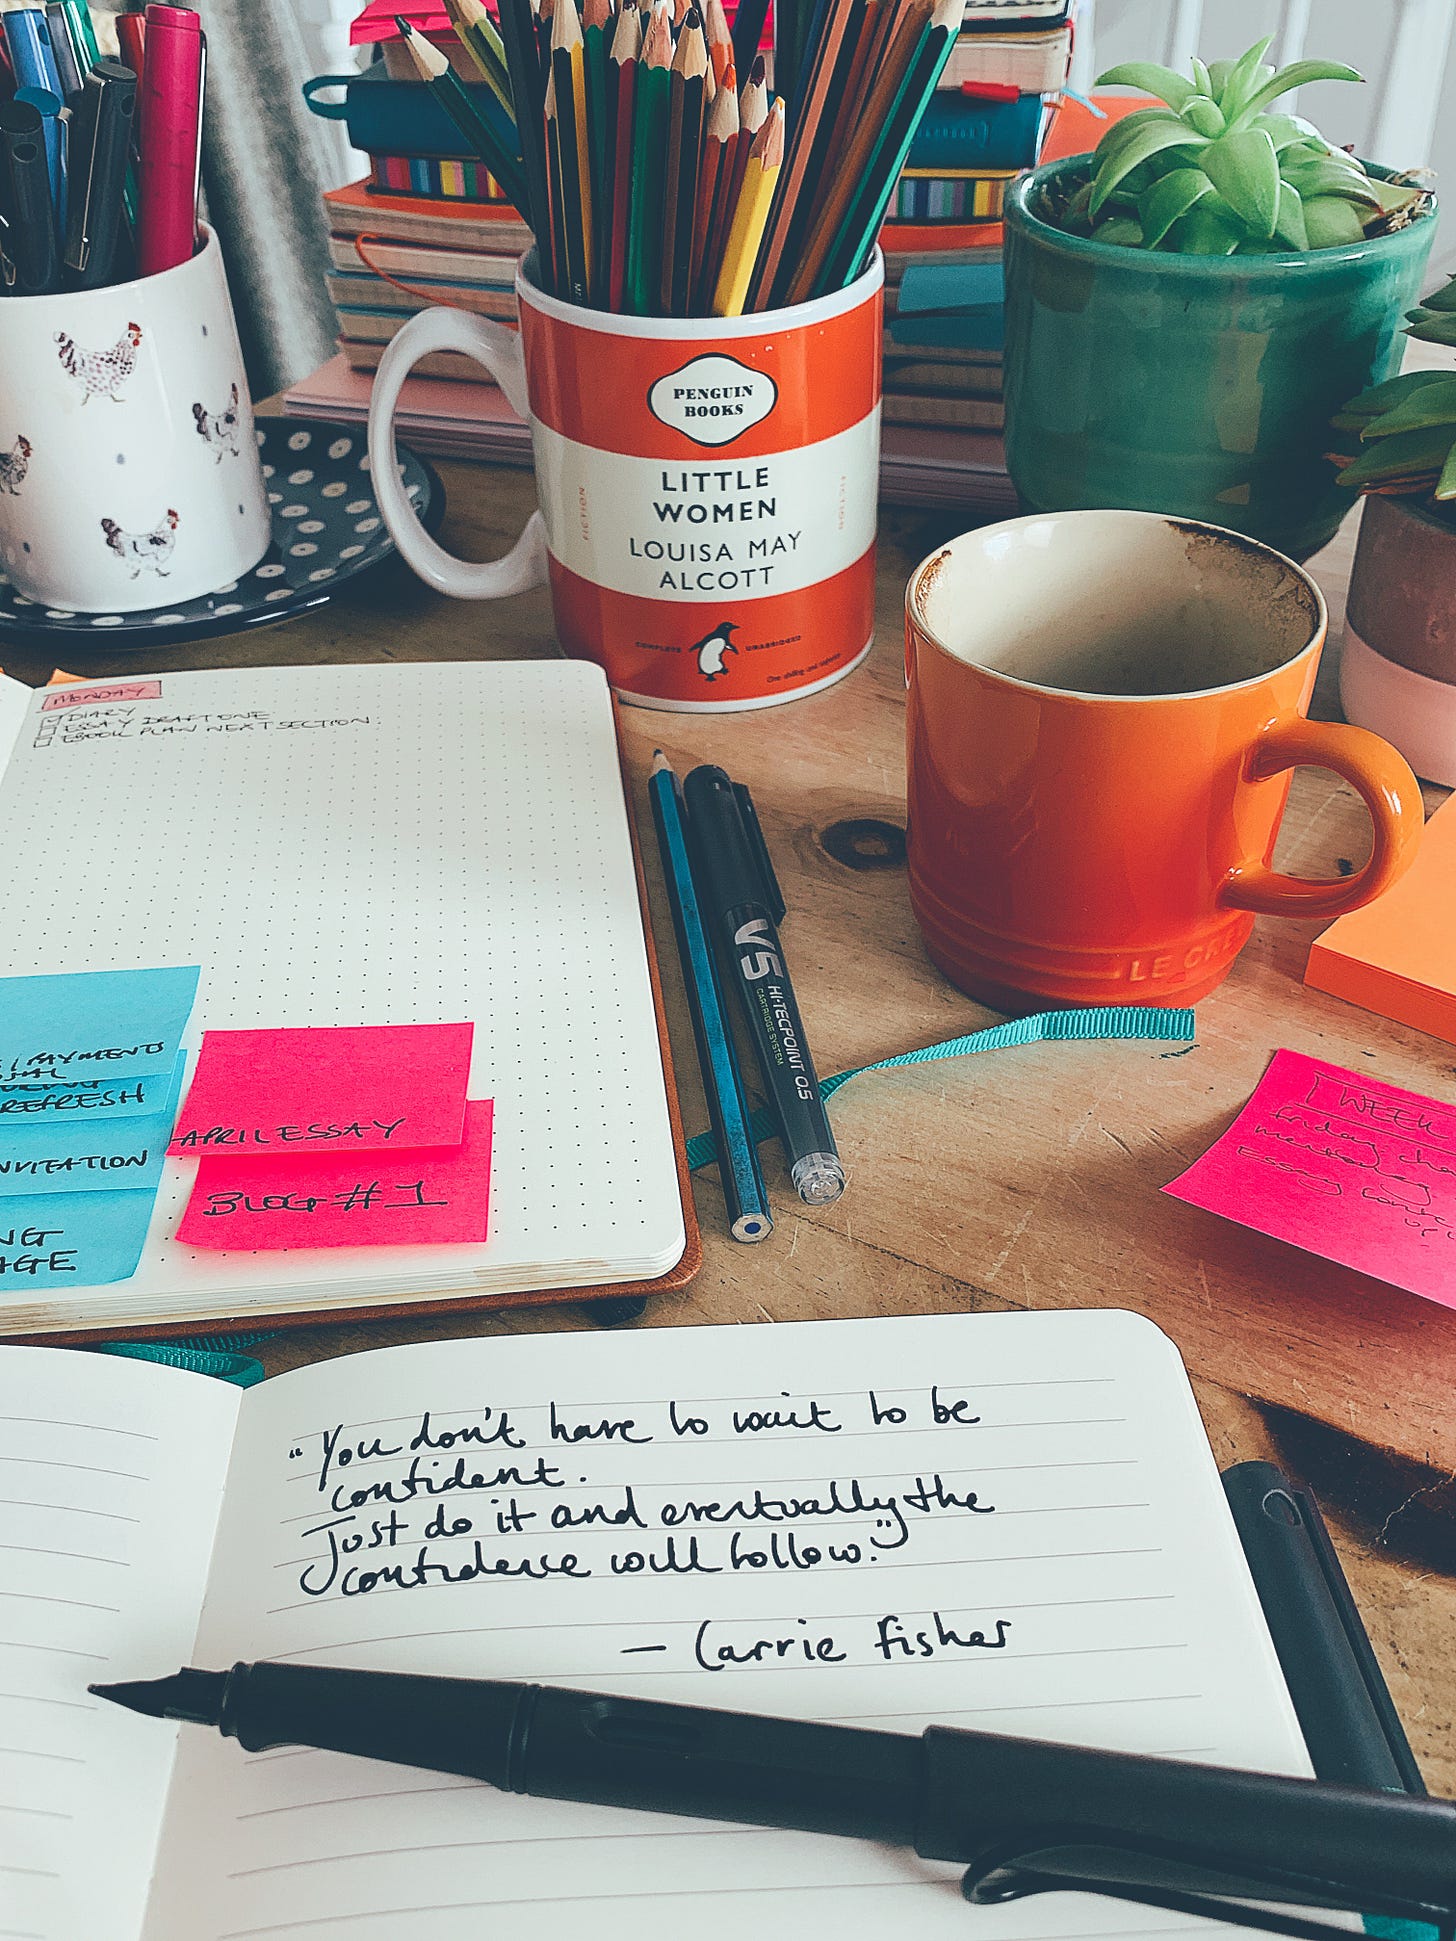 PENGUIN
BOOKS
LITTLE
WOMEN
LOUISA MAY
ALCOTT
FICTION
FICTION
COMPLETE
UNABRIDGED
MONDAY
DIARY
ESSAY DRAFT ONE
EBOOK PLAN NEXT SECTION
LE CRE
V5
HI-TECPOINT 0.5
CARTRIDGE SYSTEM
/PAYMENTS
REFRESH
NVITATION
NG
AGE
APRIL ESSAY
BLOG #1
1 WEEK
friday
Essay
"You don't have to wait to be
confident.
Just do it and eventually the
confidence will follow."
— Carrie Fisher